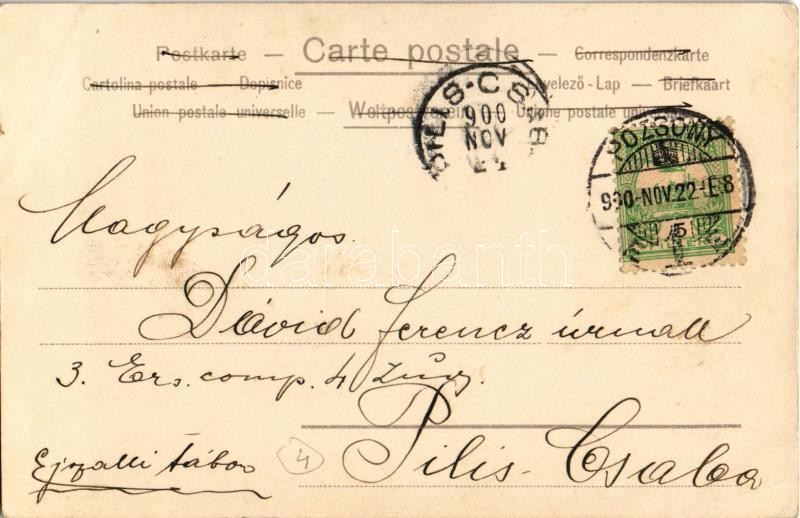 Postkarte — Carte postale — Correspondenzkarte
Cartolina postale — Dopisnice velező-Lap — Briefkaart
Union postale universelle — Weltpostverein postale uni
PILIS-CSAB
900
NOV
POZSONY
900-NOV.22-E8
Nagyságos
Dávid Ferencz úrnak
3. Ers. comp. 4 Zug.
Pilis-Csaba
tábor
4
darabanth